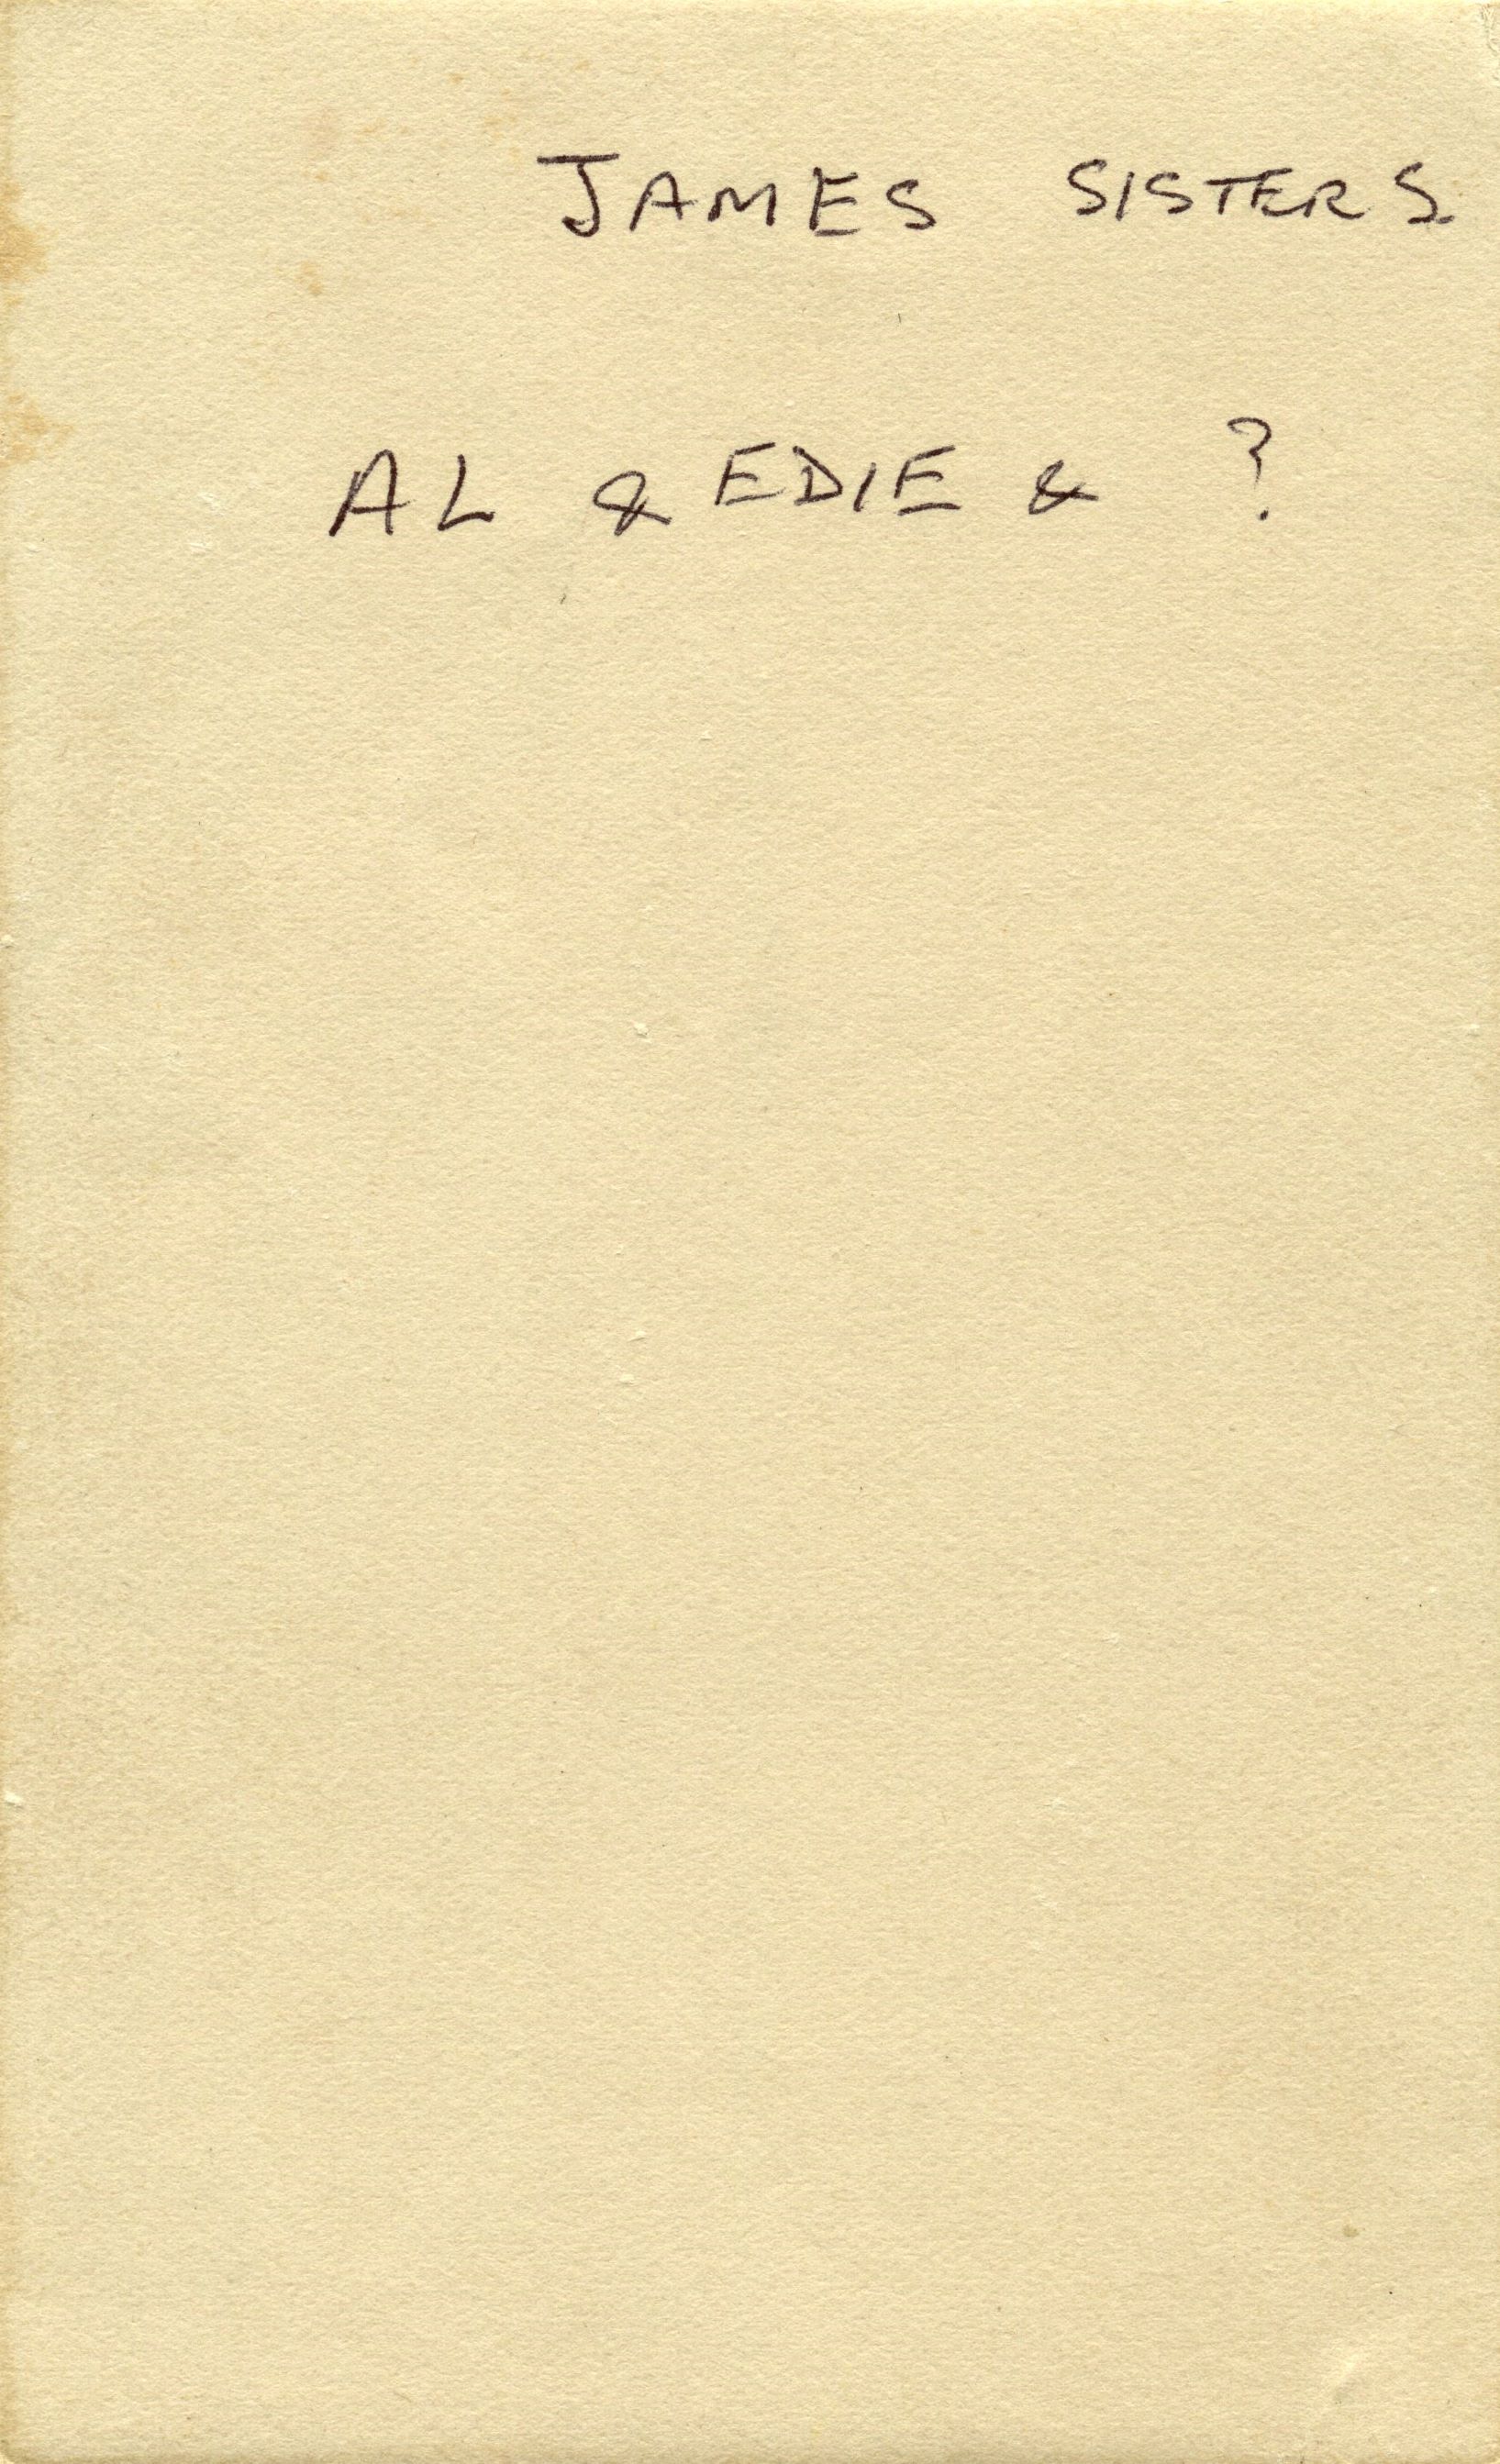 JAMES SISTERS.
AL & EDIE & ?